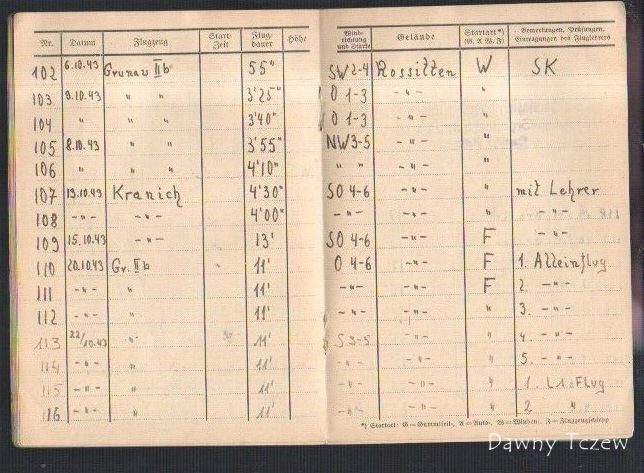 Nr. Datum Flugzeug Start-Zeit Flug-dauer Höhe Windrichtung und Stärke Gelände Startart*) (G. A. W. F.) Bemerkungen, Prüfungen, Eintragungen des Fluglehrers
102 6.10.43 Grunau II b 55" SW 2-4 Rossitten W SK
103 9.10.43 " " 3'25" O 1-3 -"- "
104 " " " 3'40" O 1-3 -"- "
105 8.10.43 " " 3'55" NW 3-5 -"- "
106 " " " 4'10" " " -"- "
107 13.10.43 Kranich 4'30" SO 4-6 -"- " mit Lehrer
108 -"- -"- 4'00" -"- -"- " -"-
109 15.10.43 -"- 13' SO 4-6 -"- F -"-
110 20.10.43 Gr. II b 11' O 4-6 -"- F 1. Alleinflug
111 -"- " 11' -"- -"- F 2. -"-
112 -"- " 11' -"- -"- " 3. -"-
113 22/10.43 " 11' S 3-5 -"- " 4. -"-
114 -"- " 11' -"- -"- " 5. -"-
115 -"- " 11' -"- -"- " 1. L1 Flug
116 -"- " 11' -"- -"- " 2 "
*) Startart: G = Gummiseil, A = Auto, W = Winden, F = Flugzeugschlepp
Dawny Tczew